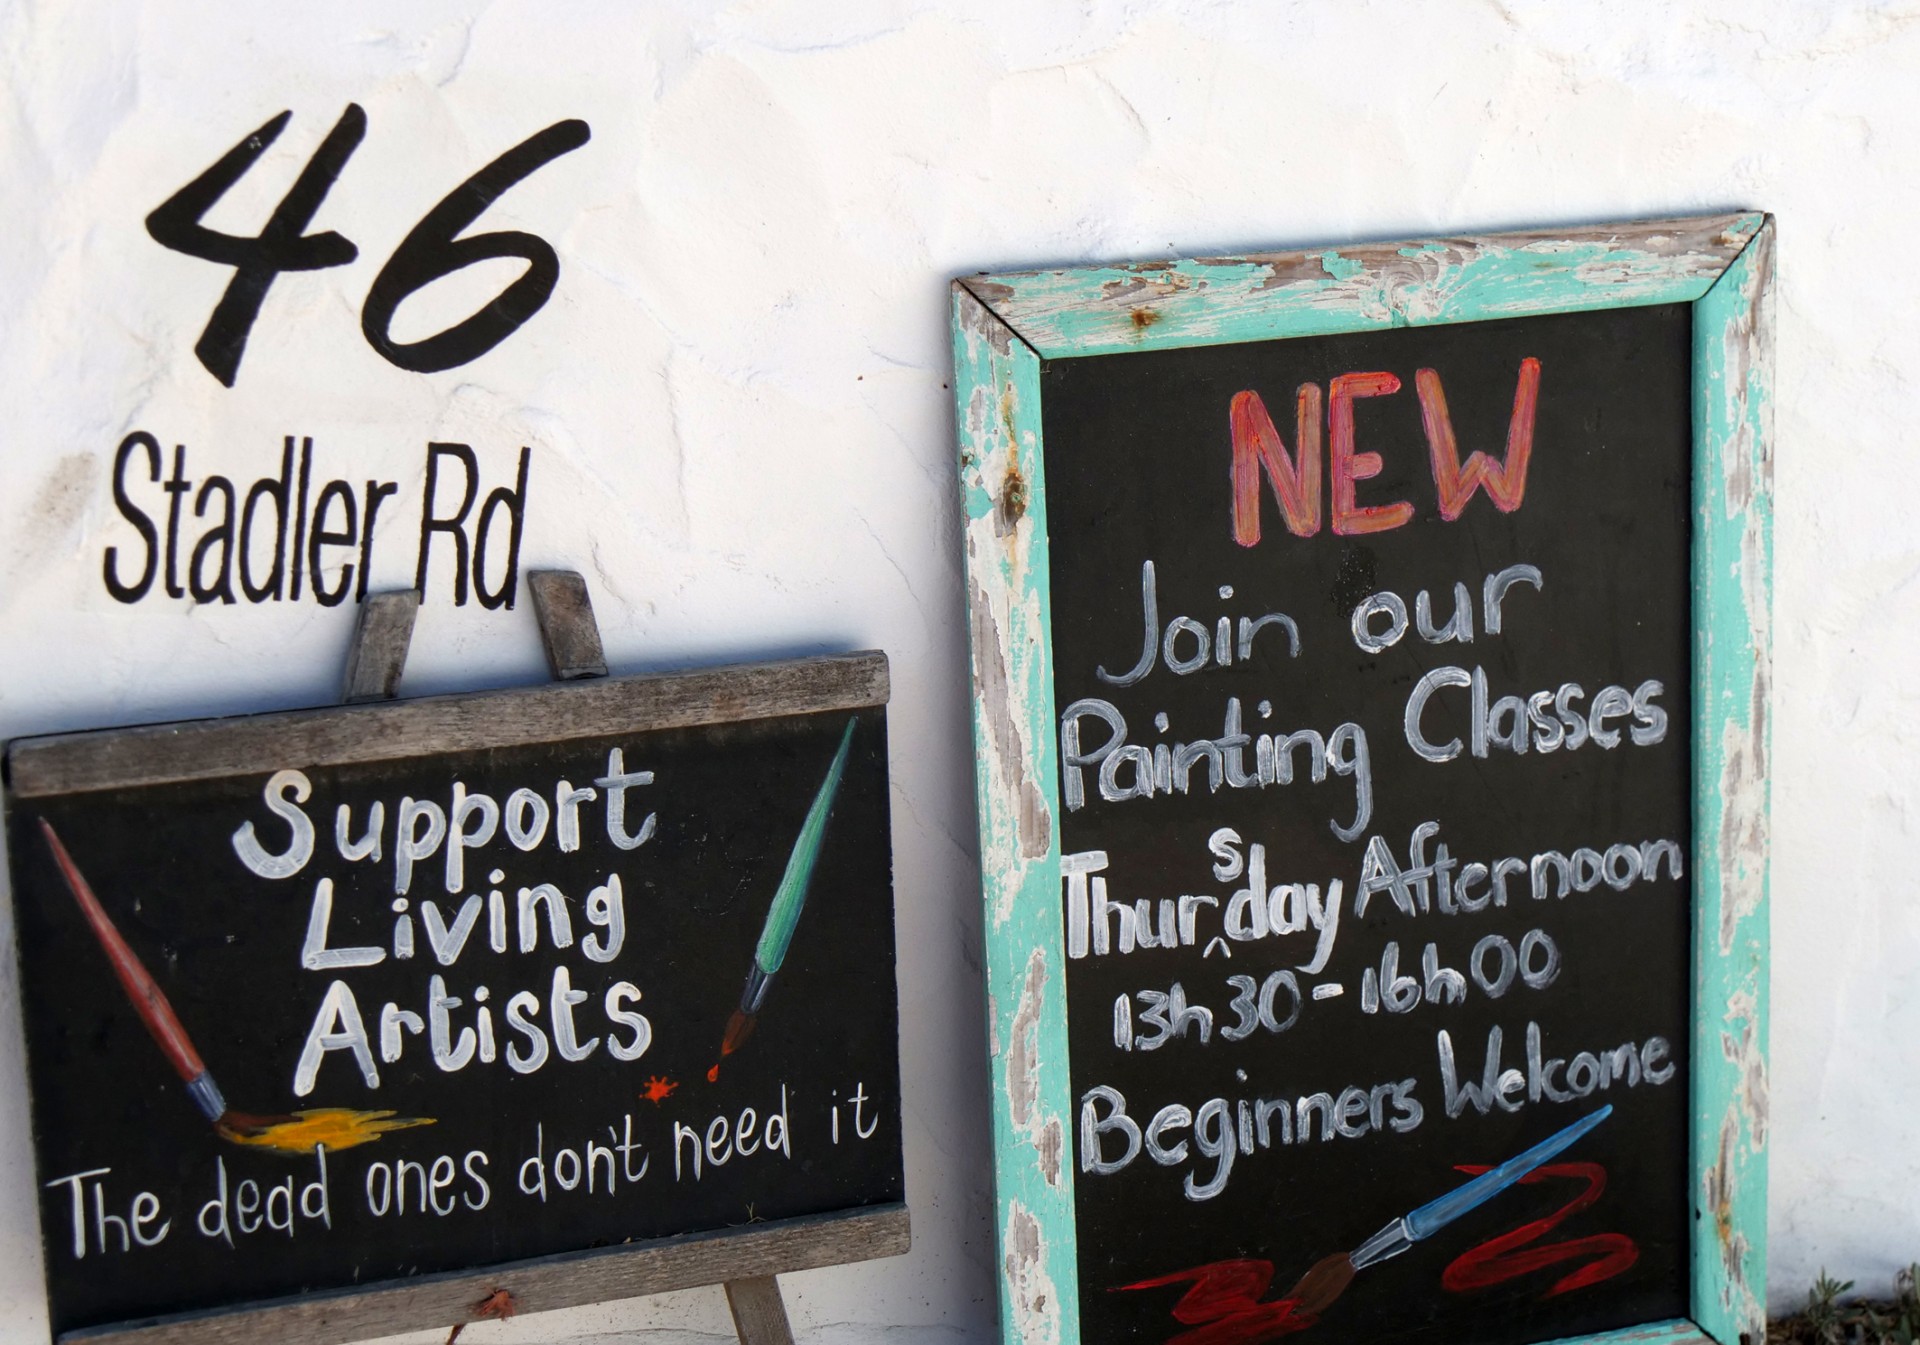 46
Stadler Rd
Support
Living
Artists
The dead ones don't need it
NEW
Join our
Painting Classes
Thursday Afternoon
13h30 - 16h00
Beginners Welcome